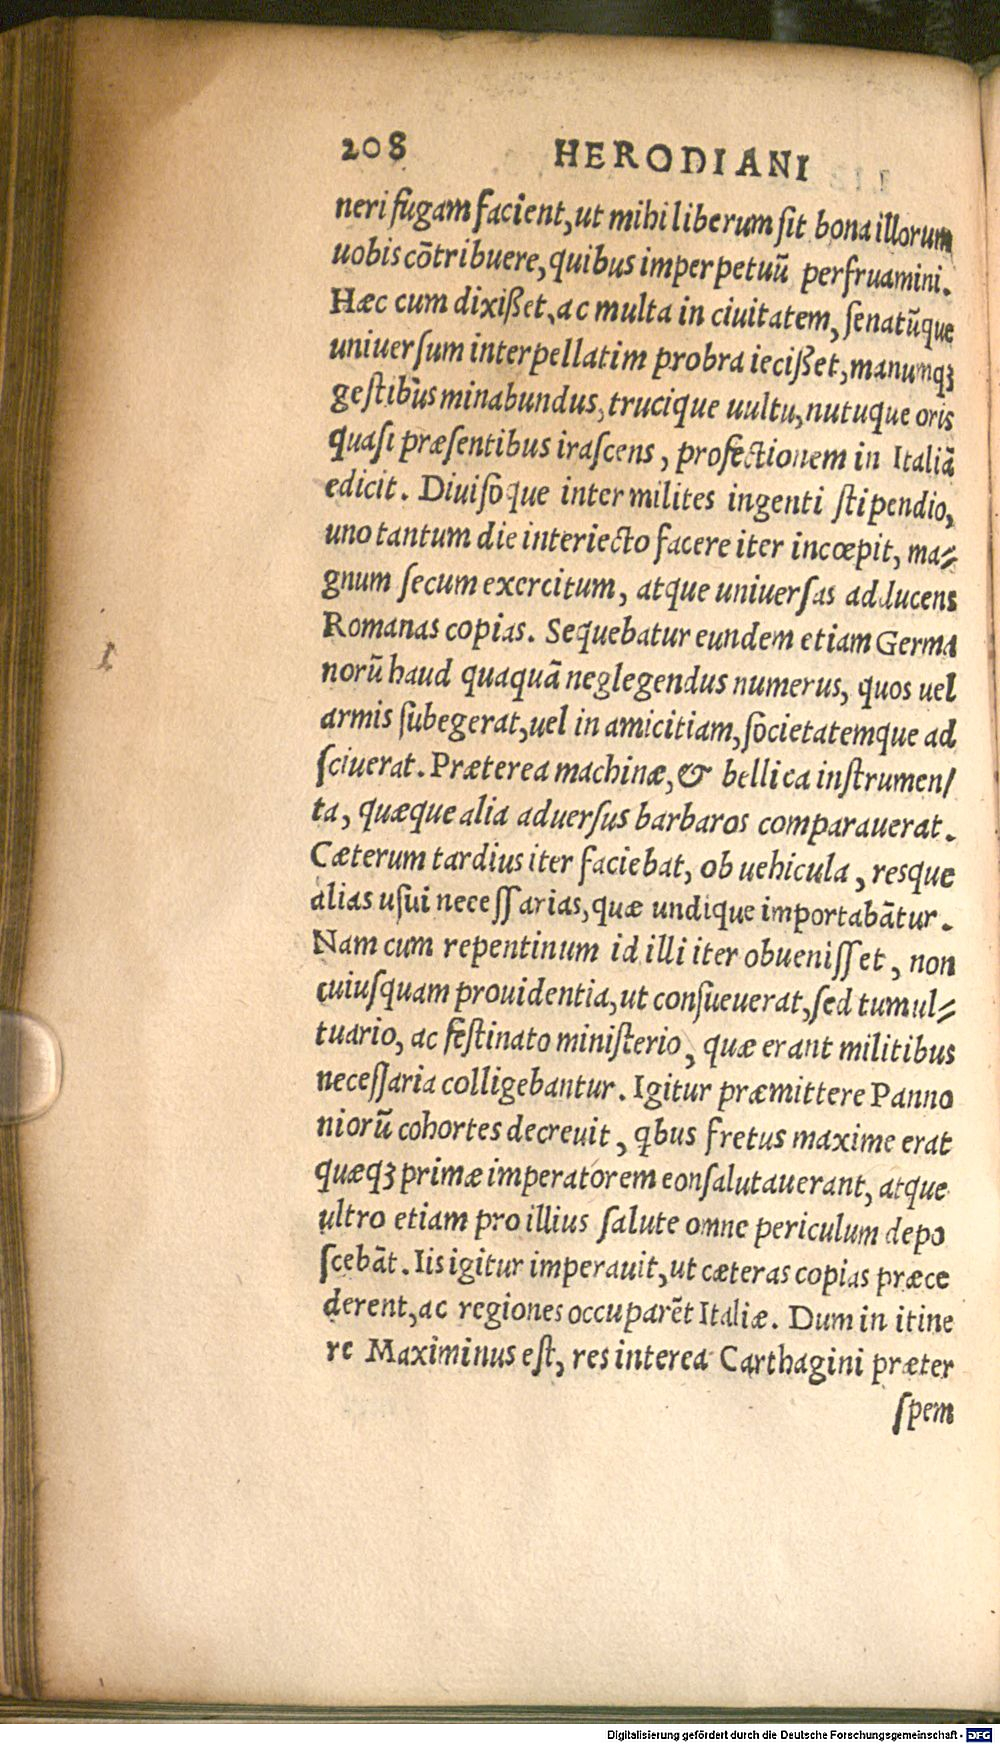 208 HERODIANI
neri fugam facient, ut mihi liberum sit bona illorum
uobis cōtribuere, quibus imperpetuū perfruamini.
Hæc cum dixißet, ac multa in ciuitatem, senatūque
uniuersum interpellatim probra iecißet, manumqꝫ
gestibus minabundus, trucique uultu, nutuque oris
quasi præsentibus irascens, profectionem in Italiā
edicit. Diuisoque inter milites ingenti stipendio,
uno tantum die interiecto facere iter incœpit, ma⸗
gnum secum exercitum, atque uniuersas adducens
Romanas copias. Sequebatur eundem etiam Germa
norū haud quaquā neglegendus numerus, quos uel
armis subegerat, uel in amicitiam, societatemque ad
sciuerat. Præterea machinæ, & bellica instrumen/
ta, quæque alia aduersus barbaros comparauerat.
Cæterum tardius iter faciebat, ob uehicula, resque
alias usui necessarias, quæ undique importabātur.
Nam cum repentinum id illi iter obuenisset, non
cuiusquam prouidentia, ut consueuerat, sed tumul⸗
tuario, ac festinato ministerio, quæ erant militibus
necessaria colligebantur. Igitur præmittere Panno
niorū cohortes decreuit, qbus fretus maxime erat
quæqꝫ primæ imperatorem eonsalutauerant, atque
ultro etiam pro illius salute omne periculum depo
scebāt. Iis igitur imperauit, ut cæteras copias præce
derent, ac regiones occuparēt Italiæ. Dum in itine
re Maximinus est, res interea Carthagini præter
spem
Digitalisierung gefördert durch die Deutsche Forschungsgemeinschaft - DFG